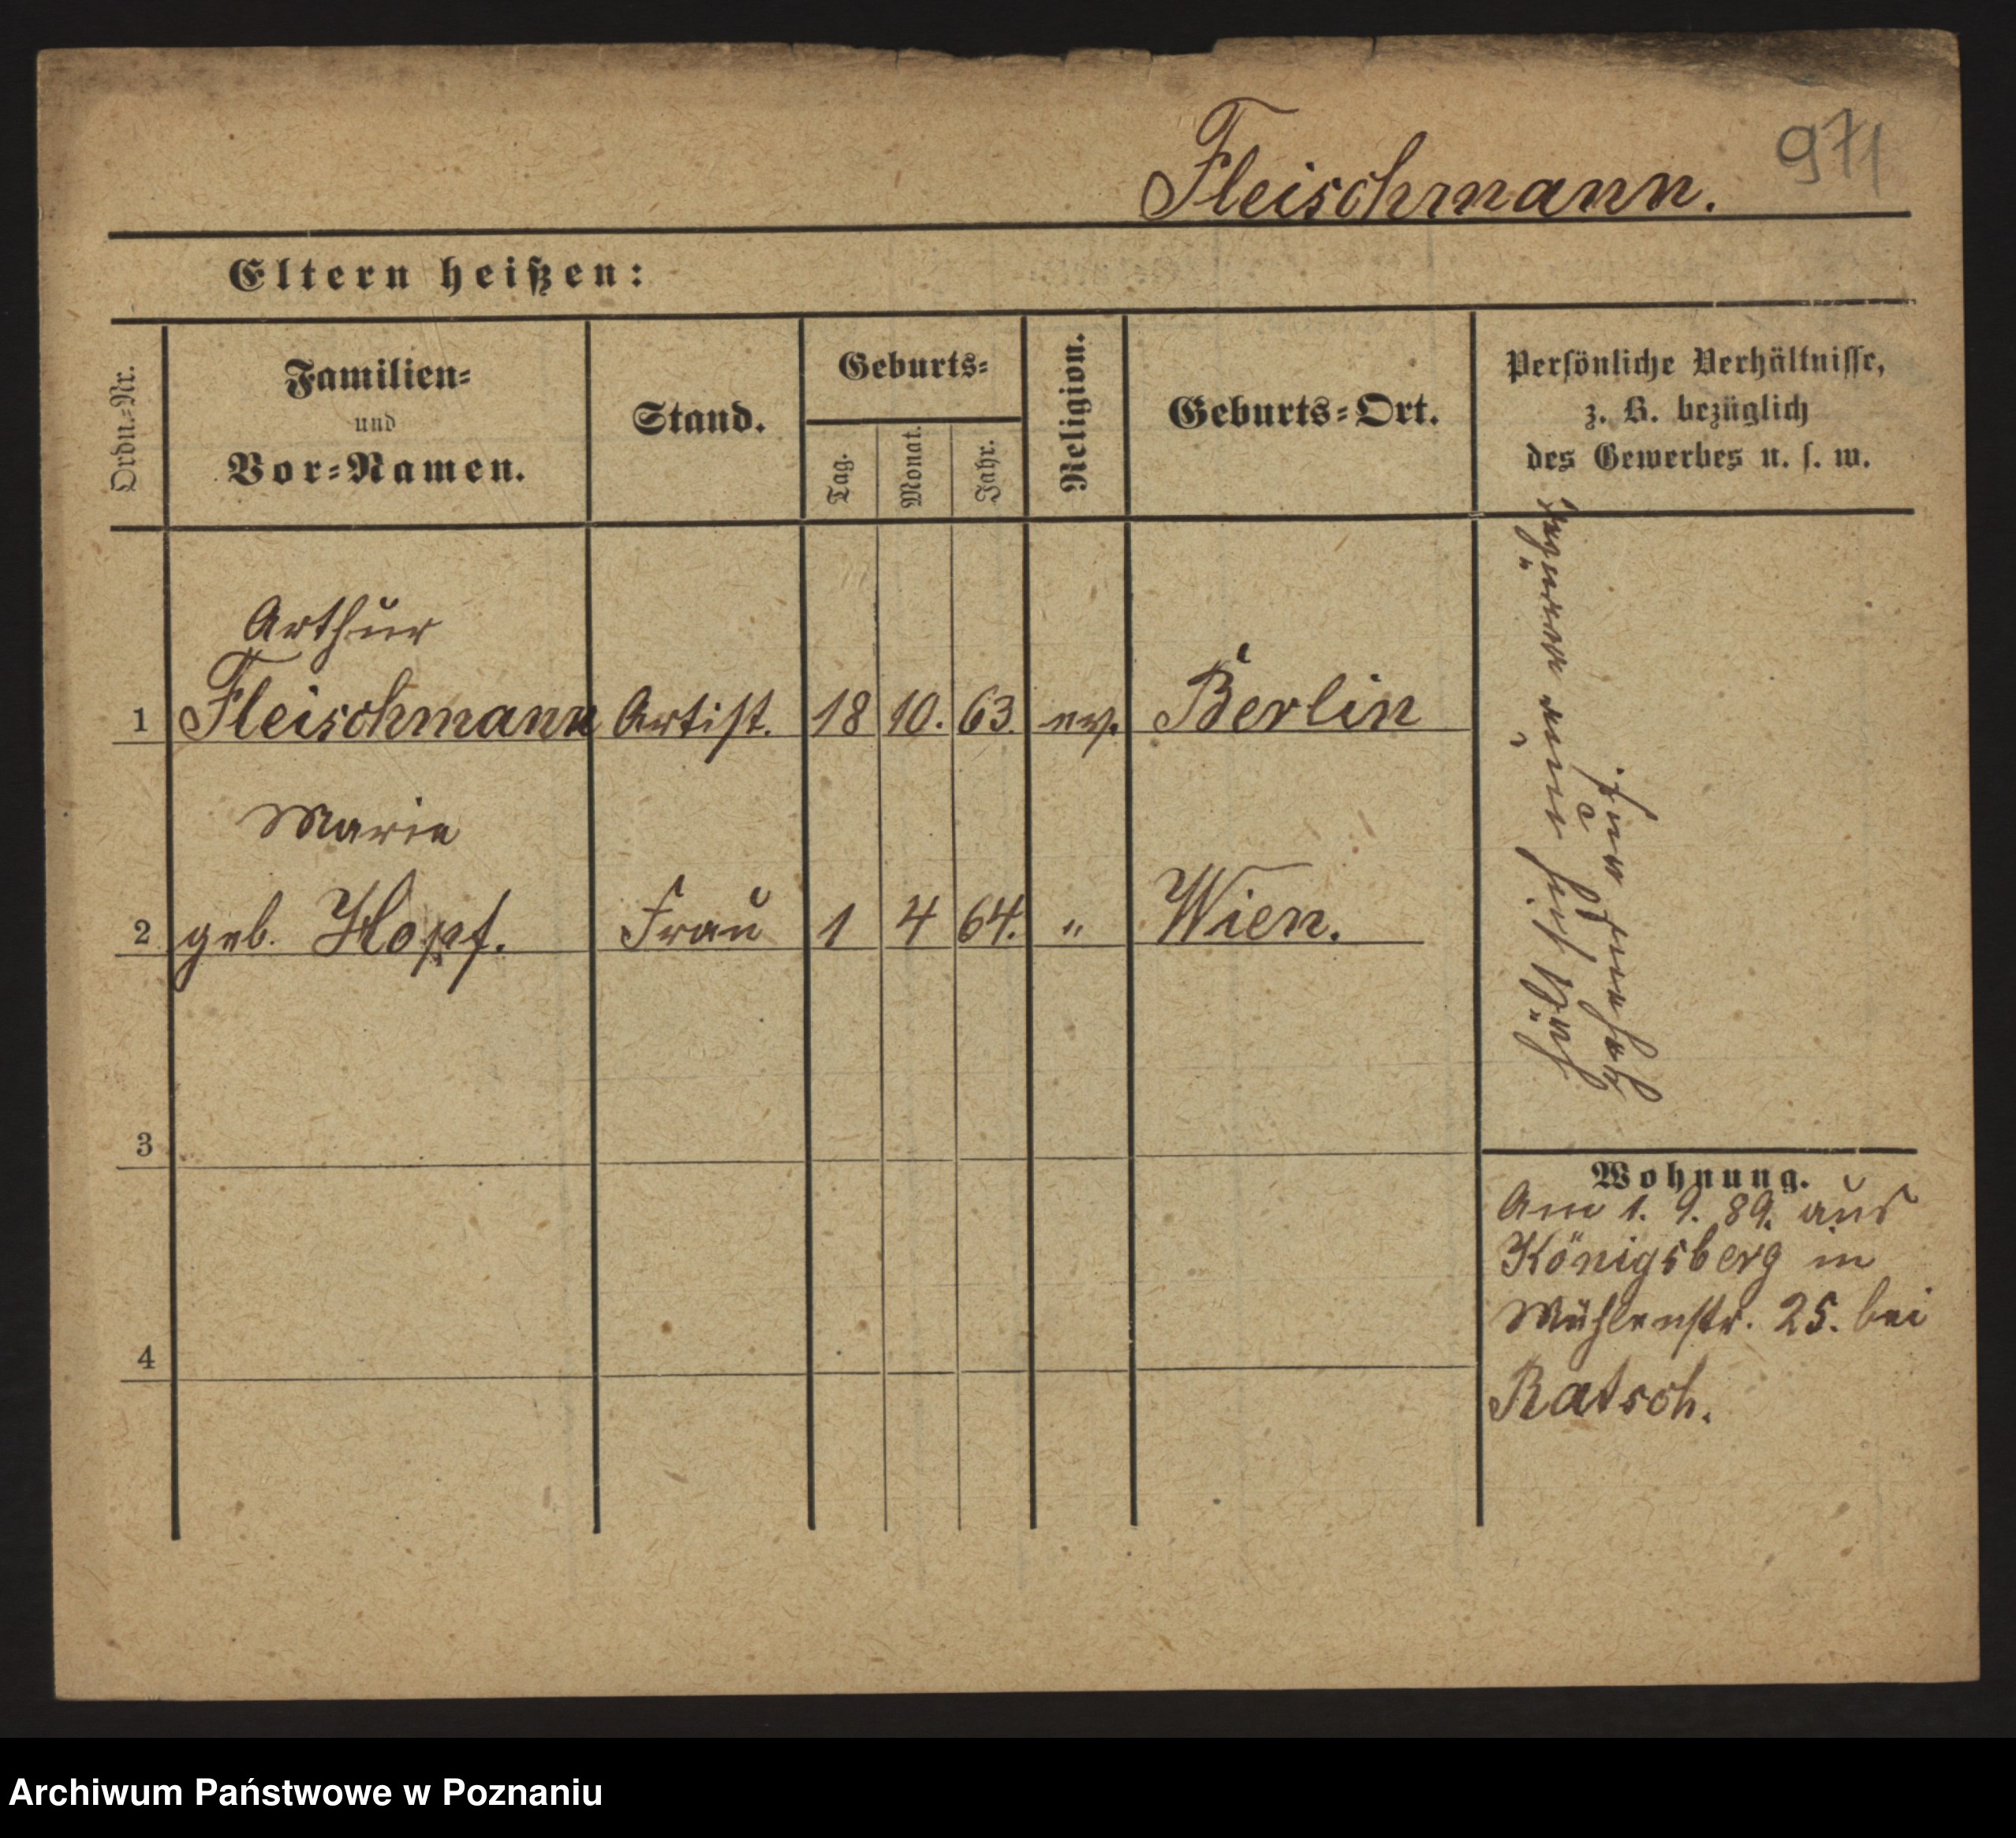 971
Fleischmann.
Eltern heißen:
Ordn.-Nr.
Familien-
und
Vor-Namen.
Stand.
Geburts-
Tag.
Monat.
Jahr.
Religion.
Geburts-Ort.
Persönliche Verhältnisse,
z. B. bezüglich
des Gewerbes u. s. w.
Arthur
1 Fleischmann Artist. 18 10. 63. ev. Berlin
Marie
2 geb. Hopf. Frau 1 4 64. " Wien.
3
4
Wohnung.
Am 1. 9. 89. aus
Königsberg in
Mühlenstr. 25. bei
Ratsch.
Archiwum Państwowe w Poznaniu